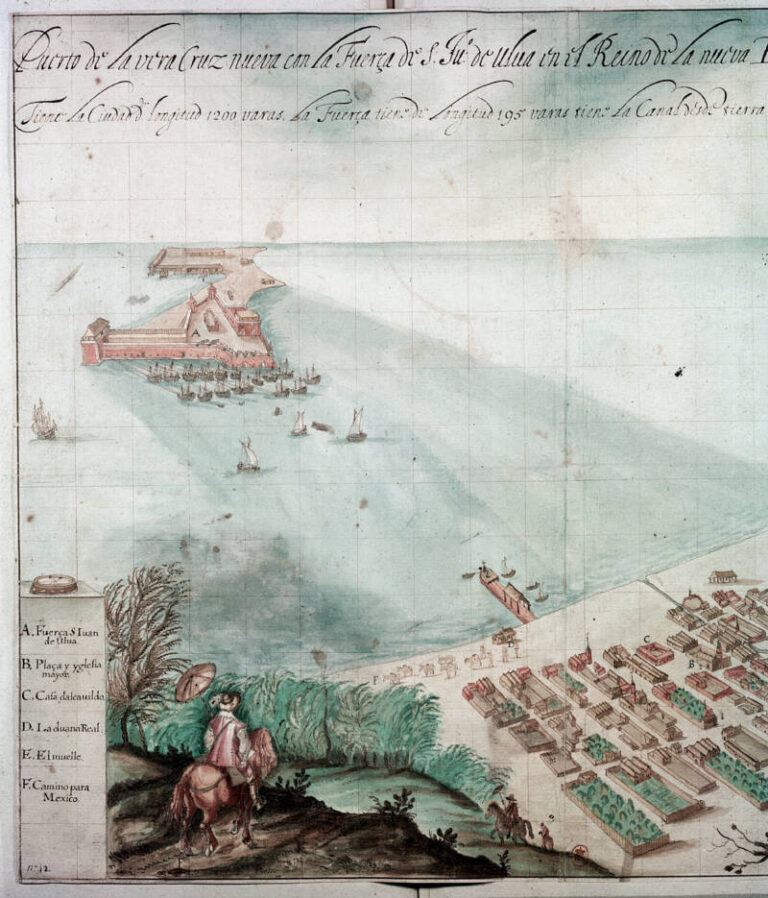 Puerto de la vera Cruz nueva con la Fuerça de S. Juº. de Ulua en el Reino de la nueva
Tiene la Ciudad d longitud 1200 varas. la Fuerça tiene de longitud 195 varas tiene la Canal desde tierra
A. Fuerça S Iuan
de Ulua.
B. Plaça y yglesia
mayor.
C. Casa
D. La duana Real.
E. El muelle.
F. Camino para
Mexico.
A
C
B
F